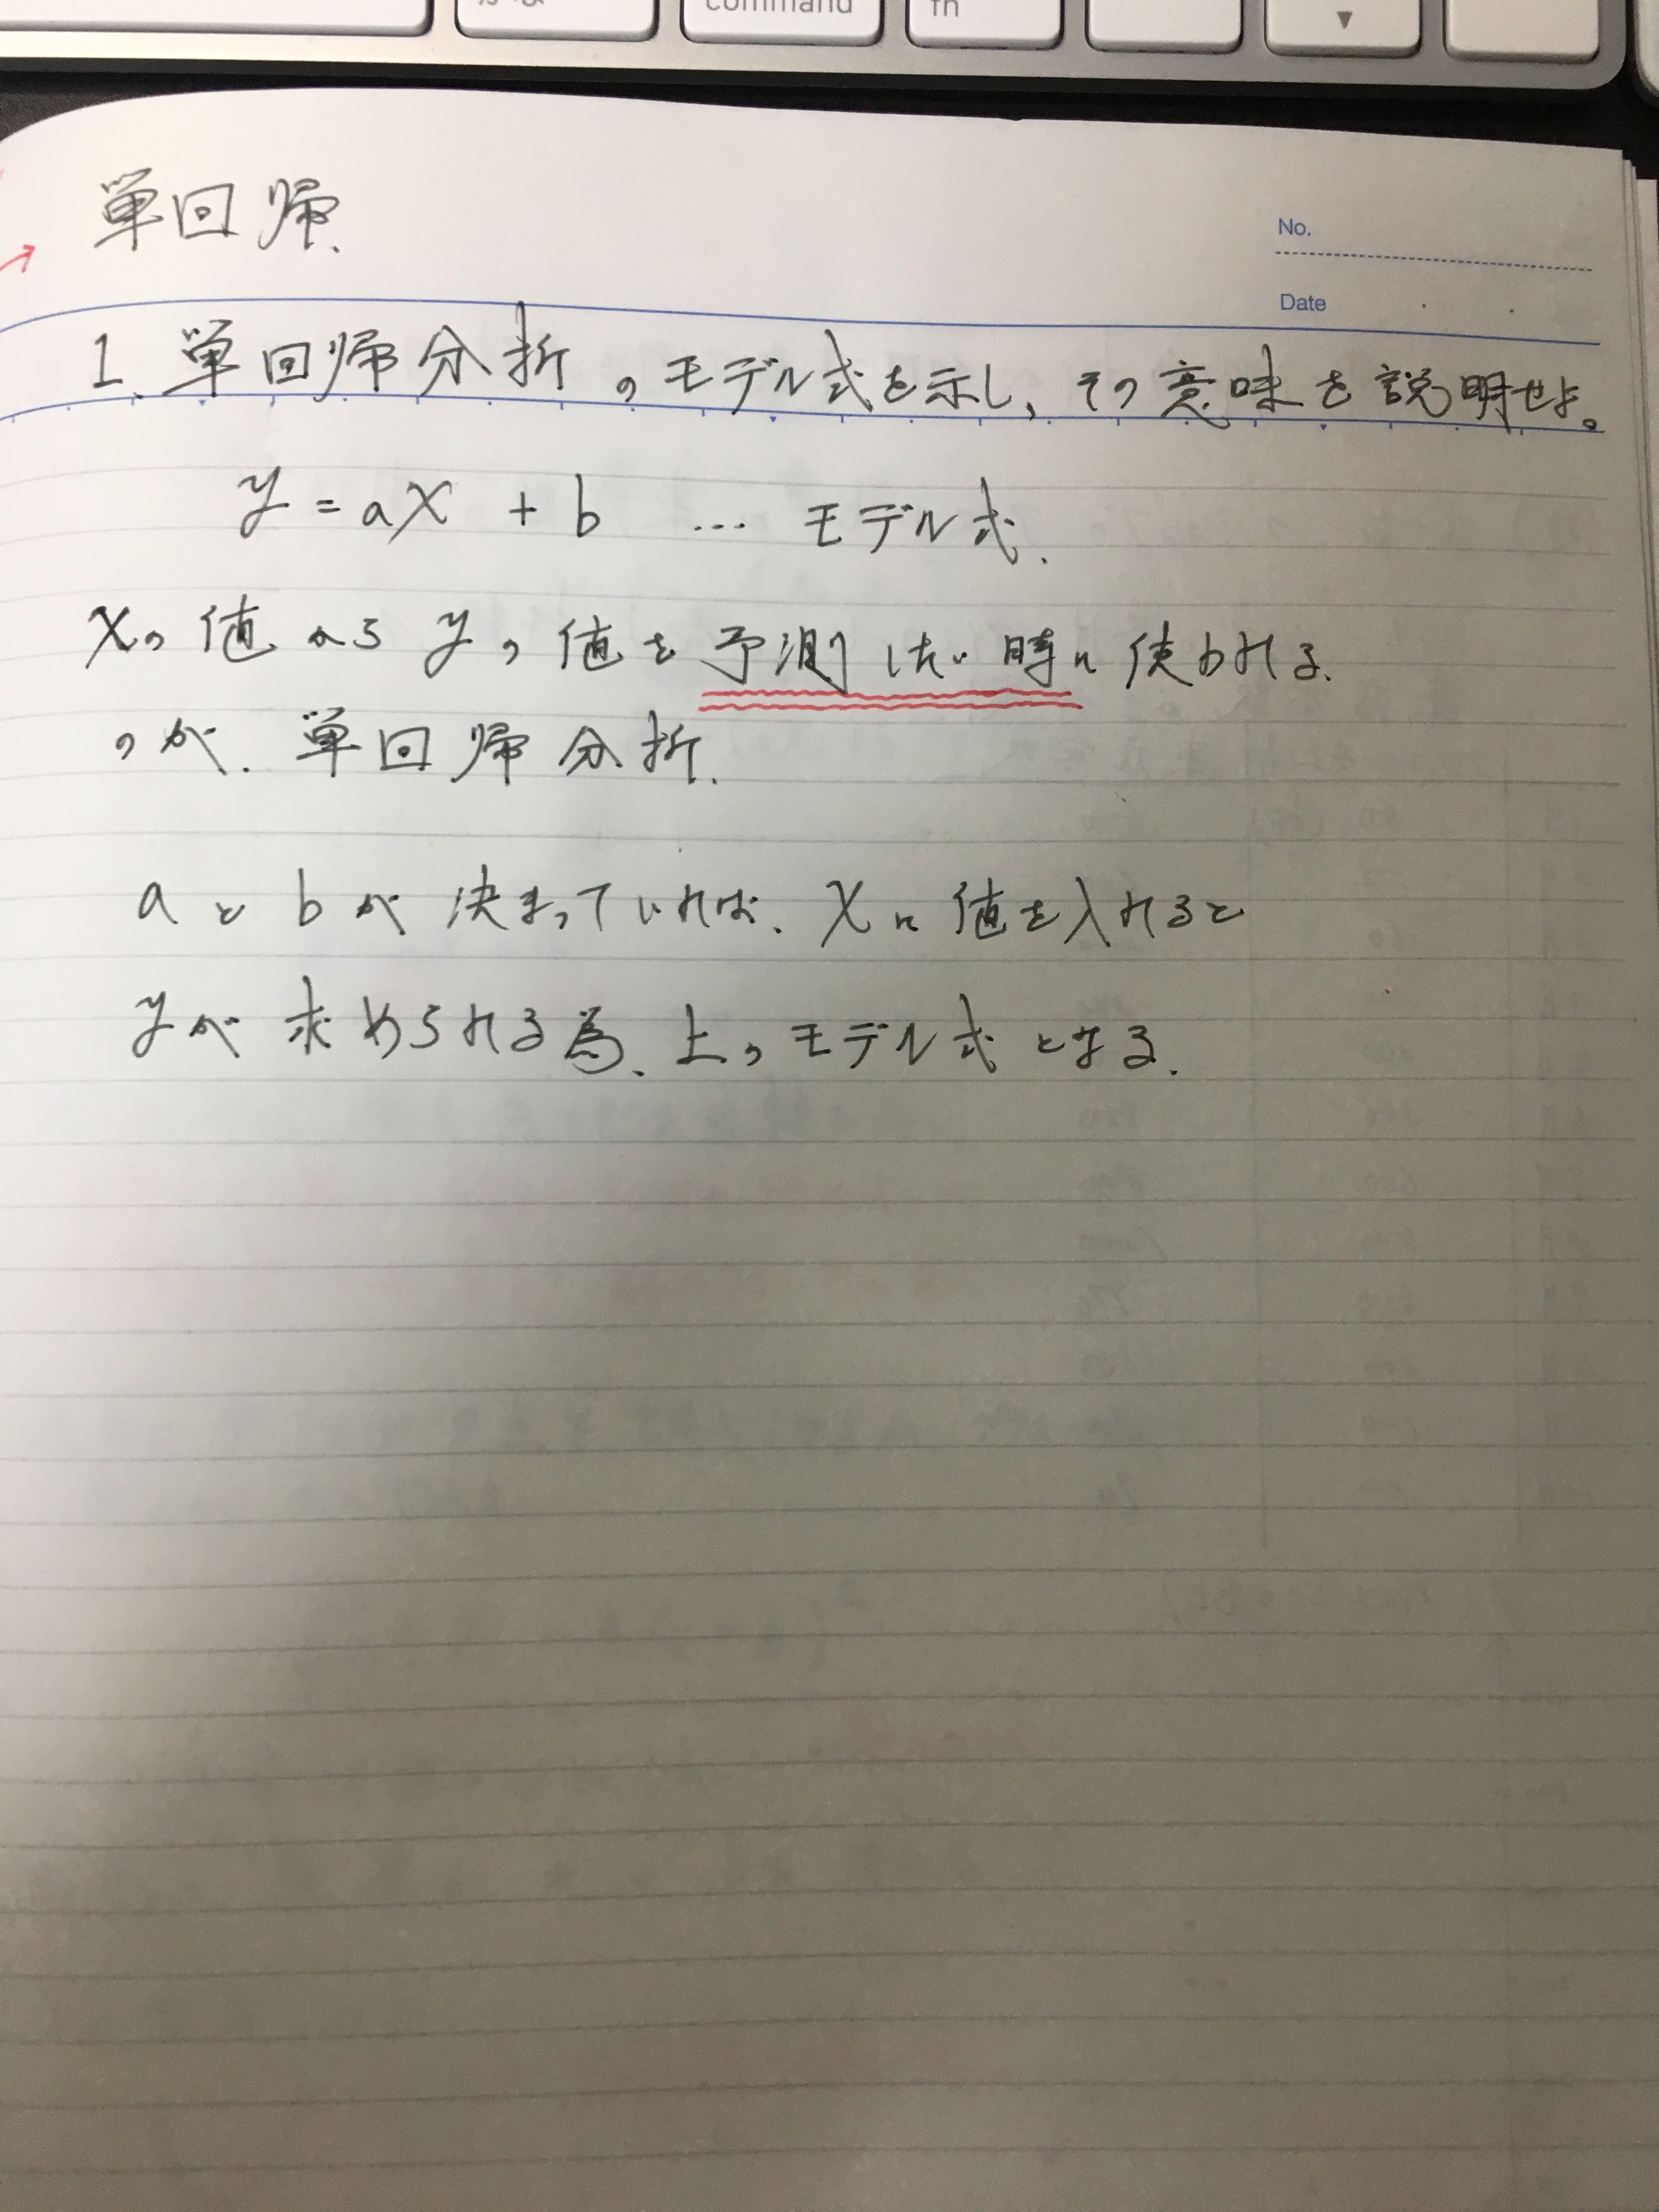 command
fn
▼
単回帰.
No.
Date
1. 単回帰分析のモデル式を示し、その意味を説明せよ。
y = ax + b … モデル式.
xの値からyの値を予測したい時に使われる.
のが. 単回帰分析.
aとbが決まっていれば. xに値を入れると
yが求められる為. 上のモデル式となる.